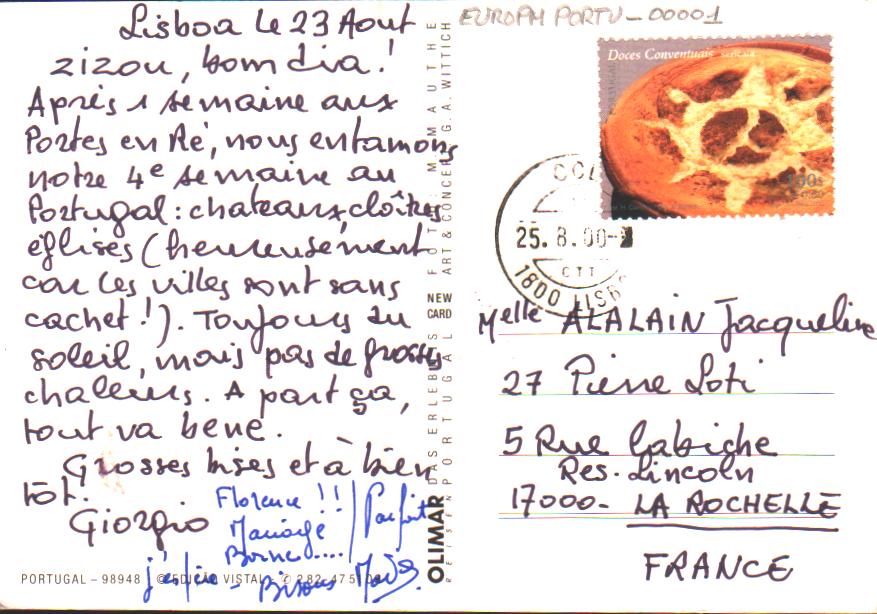 Lisboa le 23 Aout
zizou, bom dia!
Après 1 semaine aux
Portes en Ré, nous entamons
notre 4e semaine au
Portugal : chateaux, cloîtres
églises (heureusement
car les villes sont sans
cachet!). Toujours du
soleil, mais pas de grosses
chaleurs. A part ça,
tout va bene.
Grosses bises et à bien
tôt.
Giorgio
Florence !!
Mariage
Parfait
j'espère - Bisous
PORTUGAL – 98948 © EDIÇÃO VISTAL
OLIMAR
DAS ERLEBNIS
REISEN PORTUGAL
FOTO: M. MAUTHE
ART & CONCEPT G. A. WITTICH
NEW
CARD
EUROPM PORTU - 00001
Doces Conventuais sericaia
100s
25. 8. 00
CTT
1800 LISB
Melle ALALAIN Jacqueline
27 Pierre Loti
5 Rue Labiche
Res. Lincoln
17000 - LA ROCHELLE
FRANCE